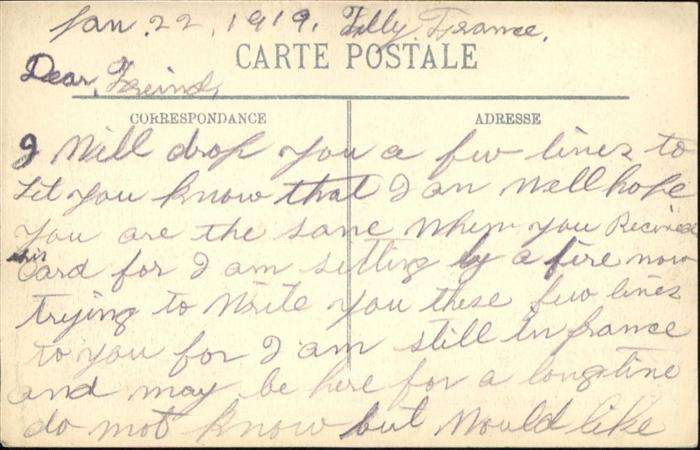 Jan. 22, 1919. Tilly, France.
CARTE POSTALE
Dear, Freind,
CORRESPONDANCE
ADRESSE
I Will drop you a few lines to
Let you know that I an Well hope
you are the sane When you Recived
this
Card for I am setting by a fire now
trying to Write you these few lines
to you for I am still in france
and may be here for a long tine
do not know but Would like